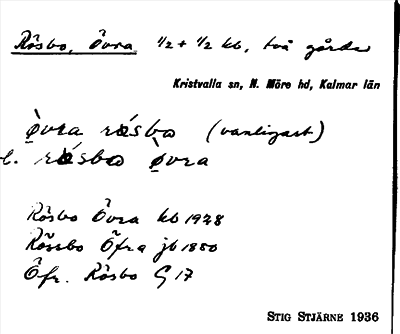 Rösbo, Övra 1/2 + 1/2 kb, två gårdar
Kristvalla sn, N. Möre hd, Kalmar län
(vanligast)
Rösbo Övra kb 1928
Rössbo Öfra jb 1880
Öfr. Rösbo G 17
STIG STJÄRNE 1936